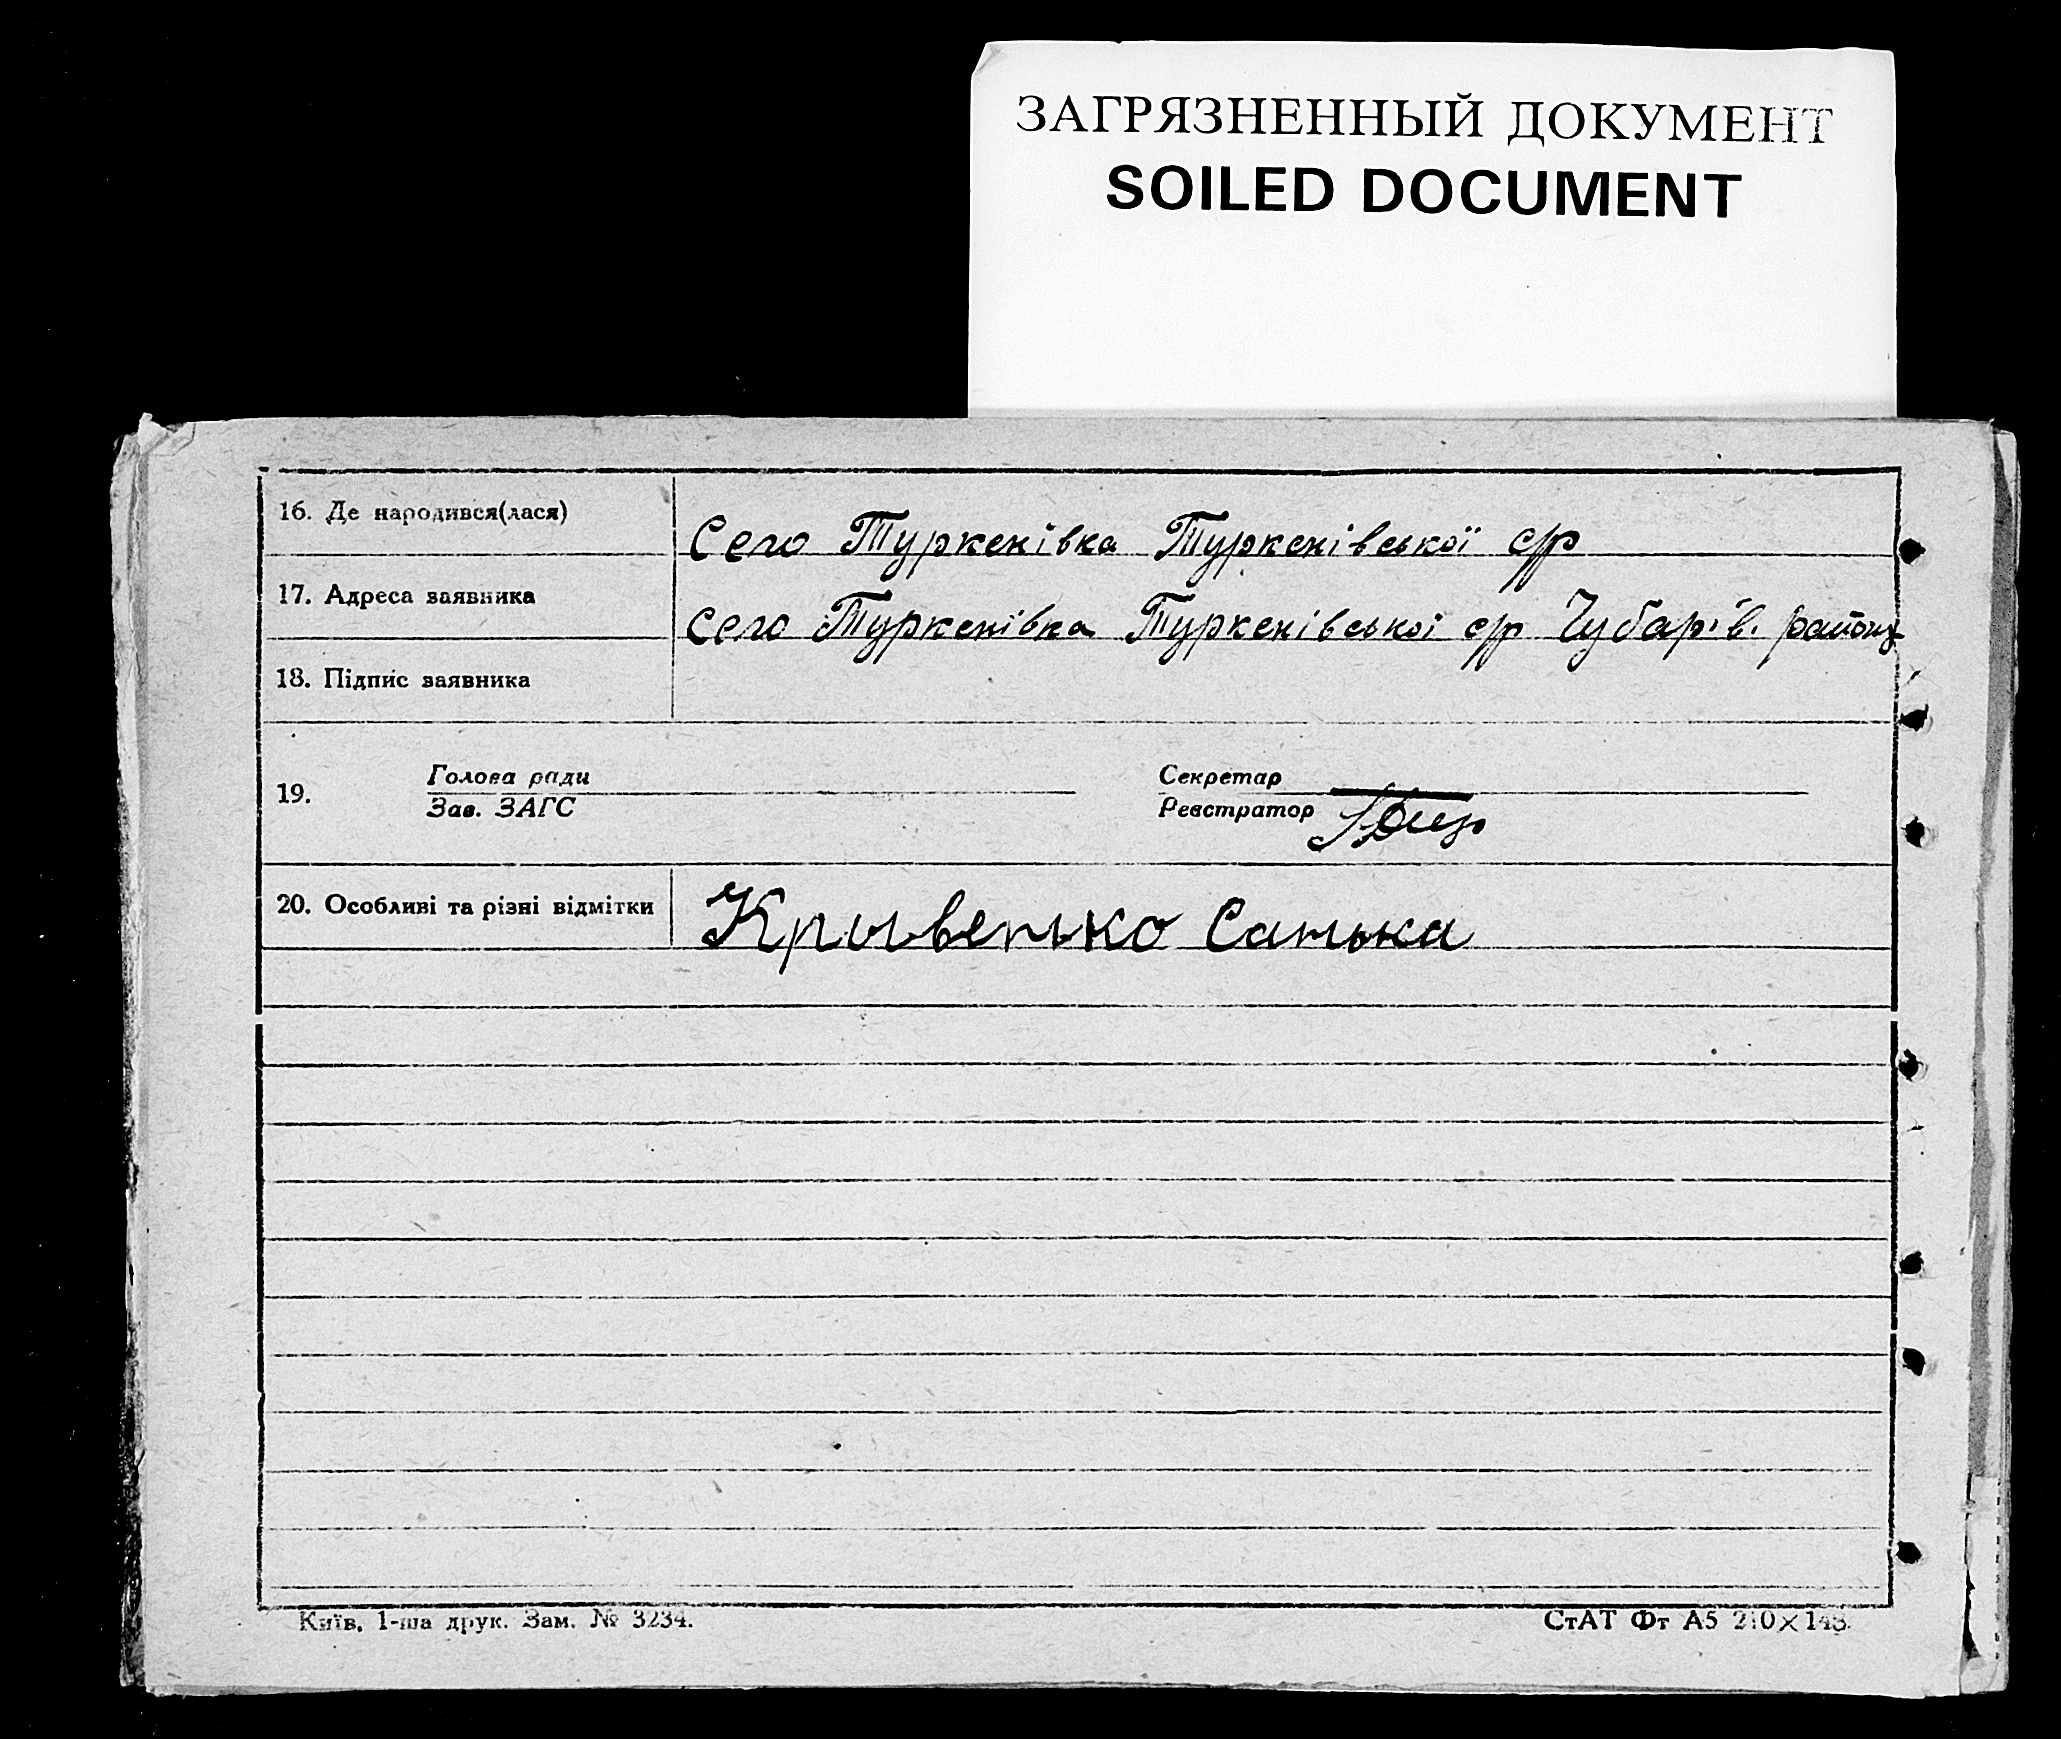 ЗАГРЯЗНЕННЫЙ ДОКУМЕНТ
SOILED DOCUMENT
16. Де народився(лася) Село Туркенівка Туркенівської с/р
17. Адреса заявника село Туркенівка Туркенівської с/р Чубарів. району
18. Підпис заявника
19. Голова ради Секретар
Зав. ЗАГС Реєстратор
20. Особливі та різні відмітки Крывенько Санька
Київ, 1-ша друк. Зам. № 3234. СтАТ Фт А5 210×148.